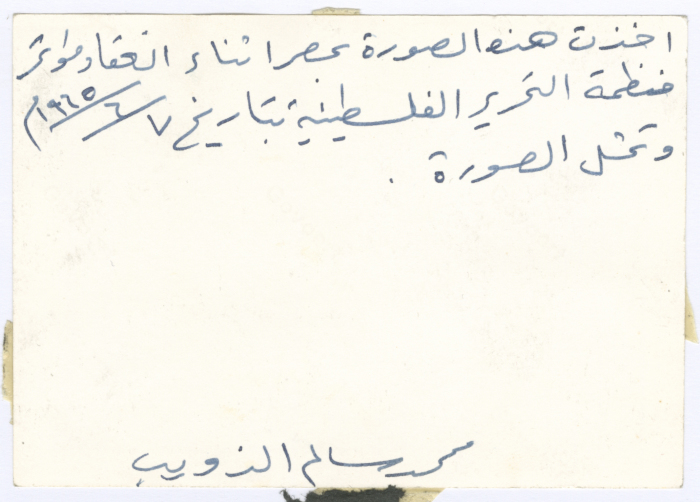 اخذت هذه الصورة بمصر اثناء انعقاد مؤتمر
منظمة التحرير الفلسطينية بتاريخ ٧/٦/١٩٦٥م
وتمثل الصورة .
محمد سالم الذويب